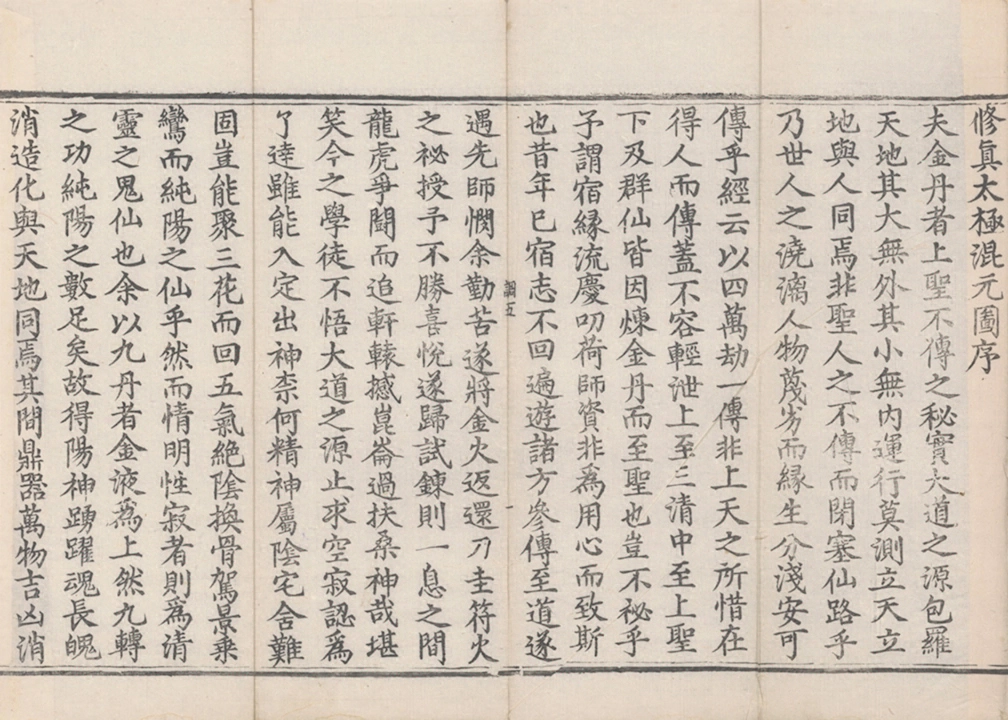 修真太極混元圖序
夫金丹者上聖不傳之秘寶大道之源包羅
天地其大無外其小無內運行莫測立天立
地與人同焉非聖人之不傳而閉塞仙路乎
乃世人之澆漓人物蔑劣而緣生分淺安可
傳乎經云以四萬劫一傳非上天之所惜在
得人而傳蓋不容輕泄上至三清中至上聖
下及群仙皆因煉金丹而至聖也豈不祕乎
予謂宿緣流慶叨荷師資非為用心而致斯
也昔年巳宿志不回遍遊諸方參傳至道遂
遇先師憫余勤苦遂將金火返還刀圭符火
之祕授予不勝喜悅遂歸試鍊則一息之間
龍虎爭鬪而追軒轅撼崑崙過扶桑神哉堪
笑今之學徒不悟大道之源止求空寂認為
了達雖能入定出神柰何精神屬陰宅舍難
固豈能聚三花而回五氣絕陰換骨駕景乗
鸞而純陽之仙乎然而情明性寂者則為清
靈之鬼仙也余以九丹者金液為上然九轉
之功純陽之數足矣故得陽神踴躍魂長魄
消造化與天地同焉其間鼎器萬物吉凶消